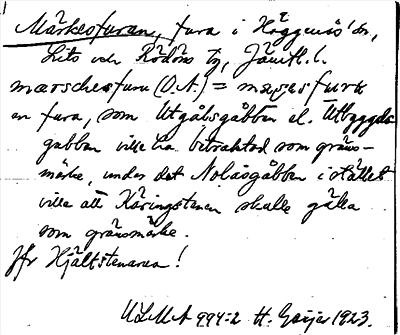 Märkesfuran, fura i Häggenås sn,
Lits och Rödöns tg, Jämtl. l.
en fura, som Utgålsgåbben el. Utbyggds
gubben ville ha betraktad som gräns-
märke, under det Nolåsgåbben i stället
ville att Käringstenen skulle gälla
som gränsmärke.
Jfr Hjältstenarna!
ULMA 994:2 H. Geijer 1923.